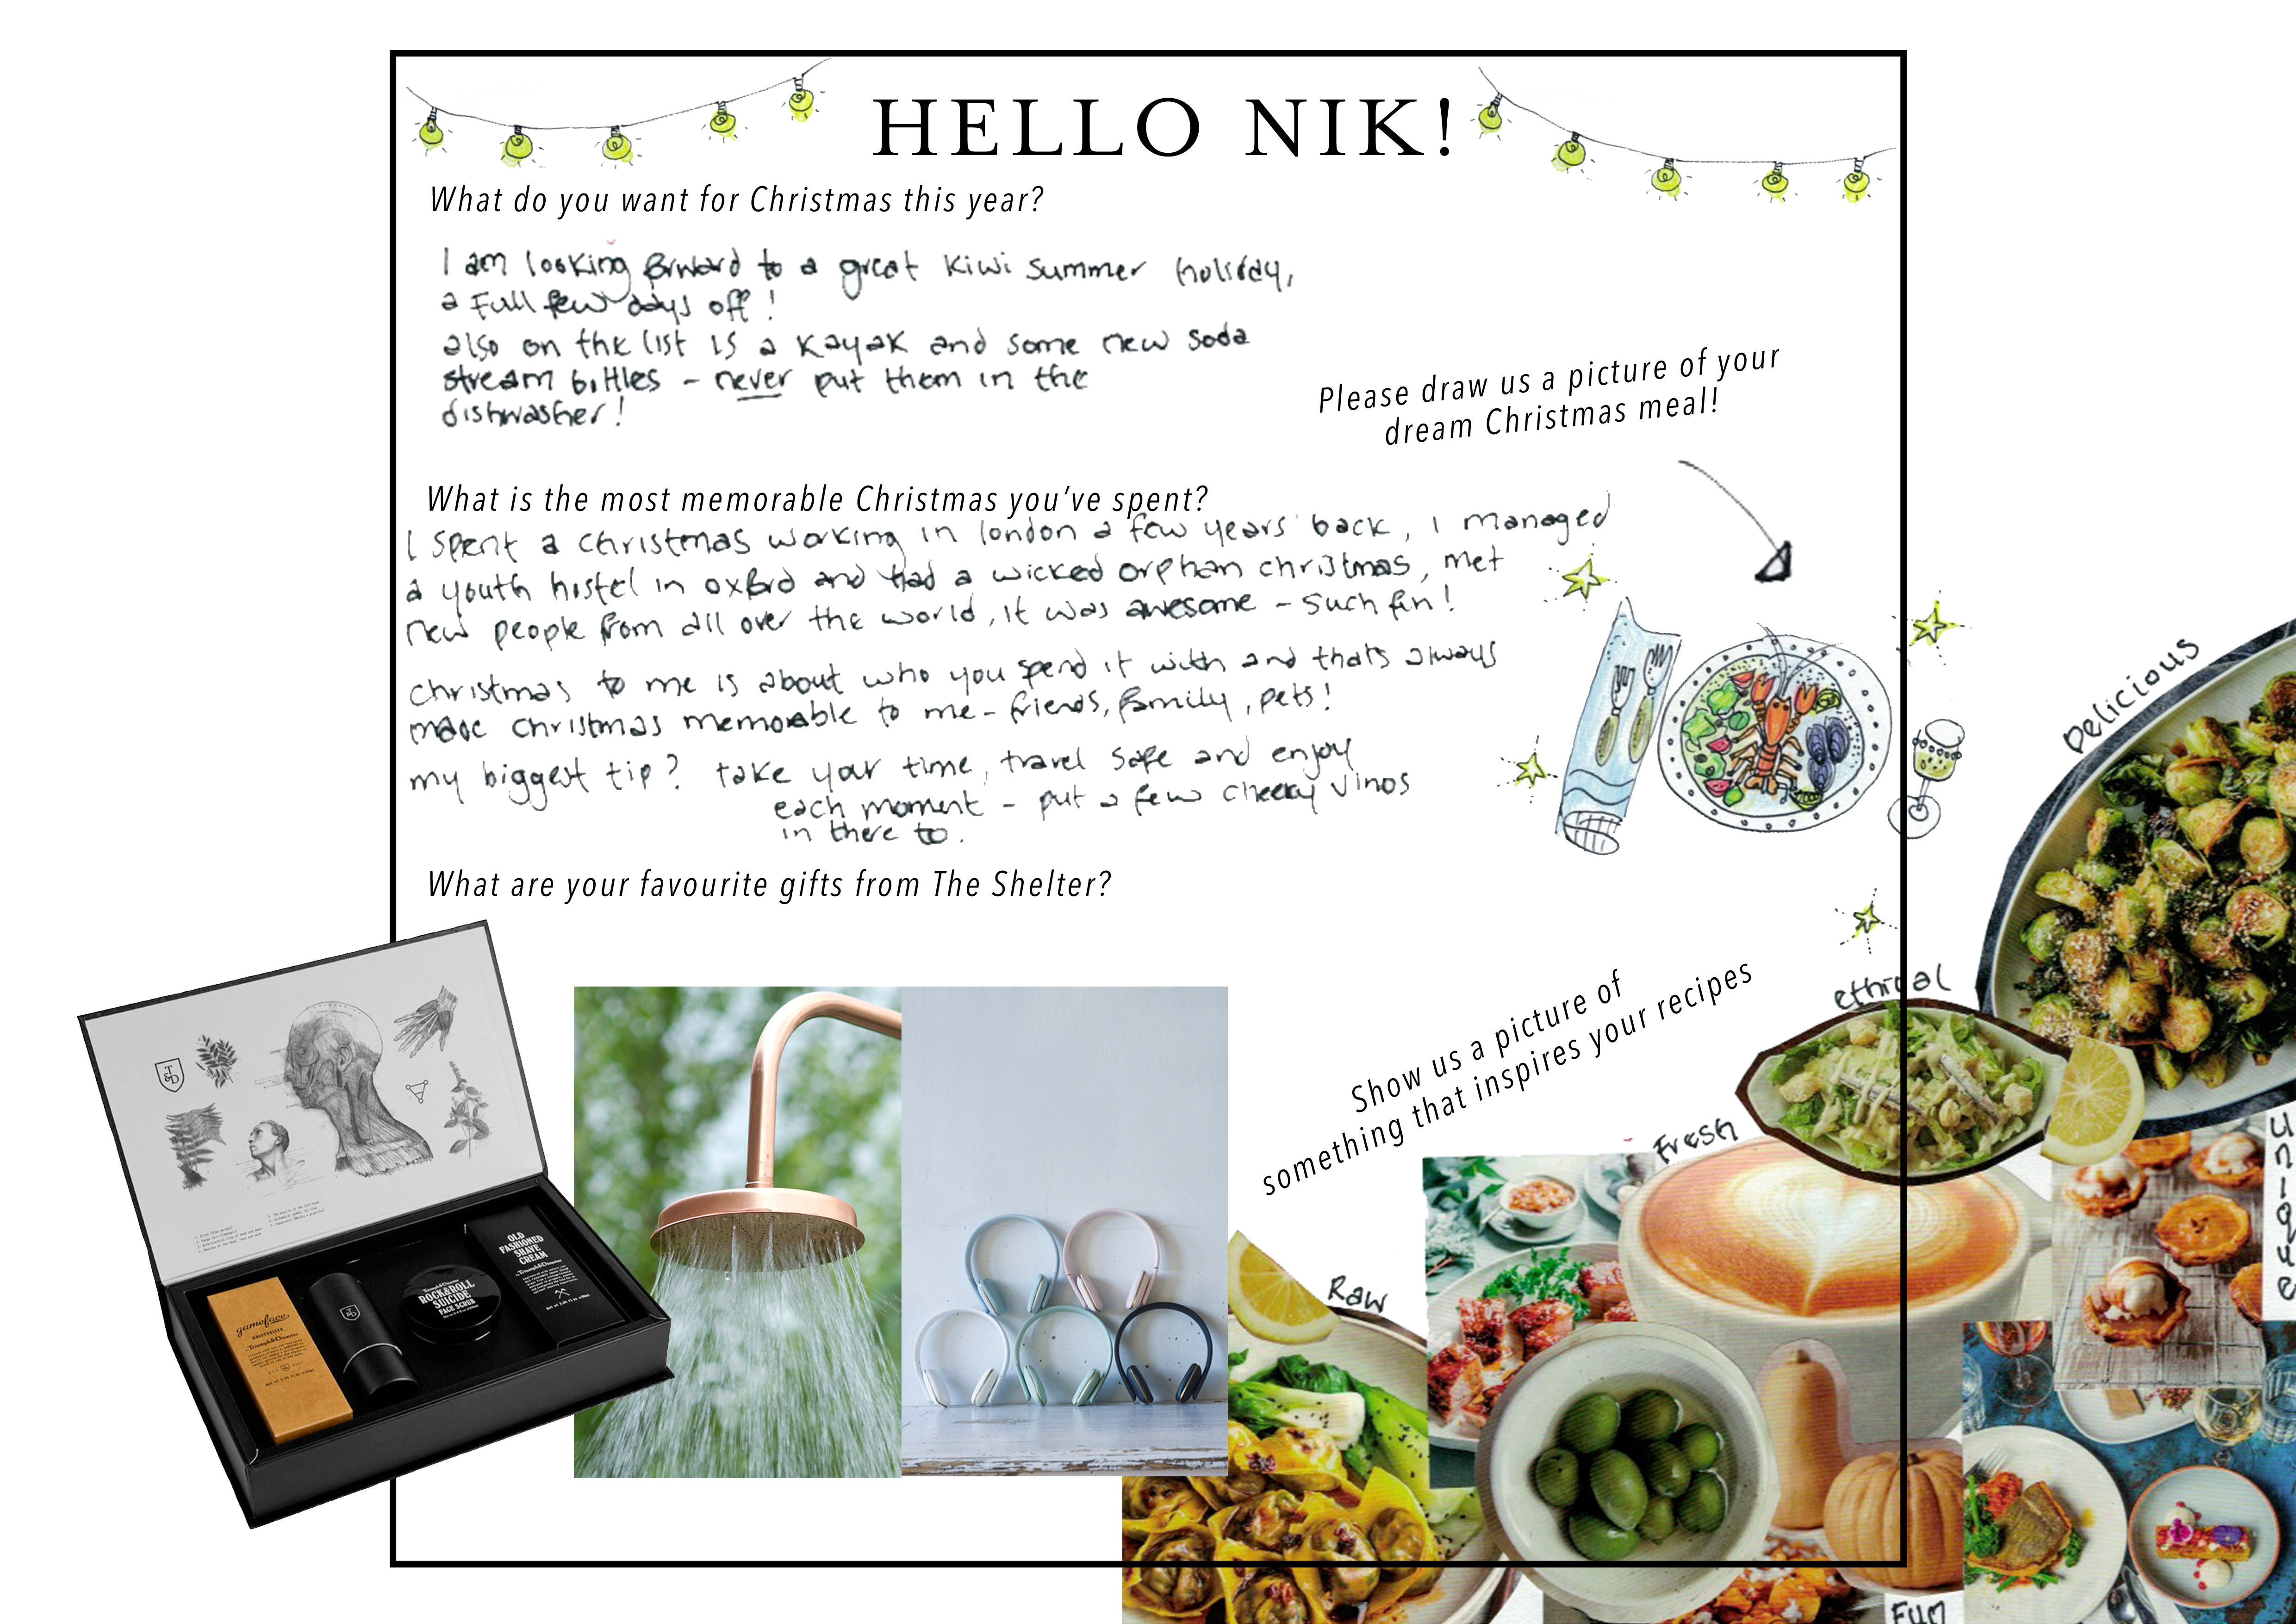 HELLO NIK!
What do you want for Christmas this year?
I am looking forward to a great Kiwi summer holiday,
a Full few days off!
also on the list is a Kayak and some new soda
stream bottles - never put them in the
dishwasher!
Please draw us a picture of your
dream Christmas meal!
What is the most memorable Christmas you've spent?
I spent a christmas working in london a few years back, I managed
a youth hostel in oxford and had a wicked orphan christmas, met
new people from all over the world, it was awesome - such fun!
christmas to me is about who you spend it with and thats always
made christmas memorable to me - friends, family, pets!
my biggest tip? take your time, travel safe and enjoy
each moment - put a few cheeky vinos
in there to.
What are your favourite gifts from The Shelter?
T&D
gameface
MOISTURISER
Triumph & Disaster
ROCK&ROLL
SUICIDE
FACE SCRUB
OLD
FASHIONED
SHAVE
CREAM
Triumph & Disaster
Show us a picture of
something that inspires your recipes
Delicious
ethical
Fresh
Raw
unique
Fun